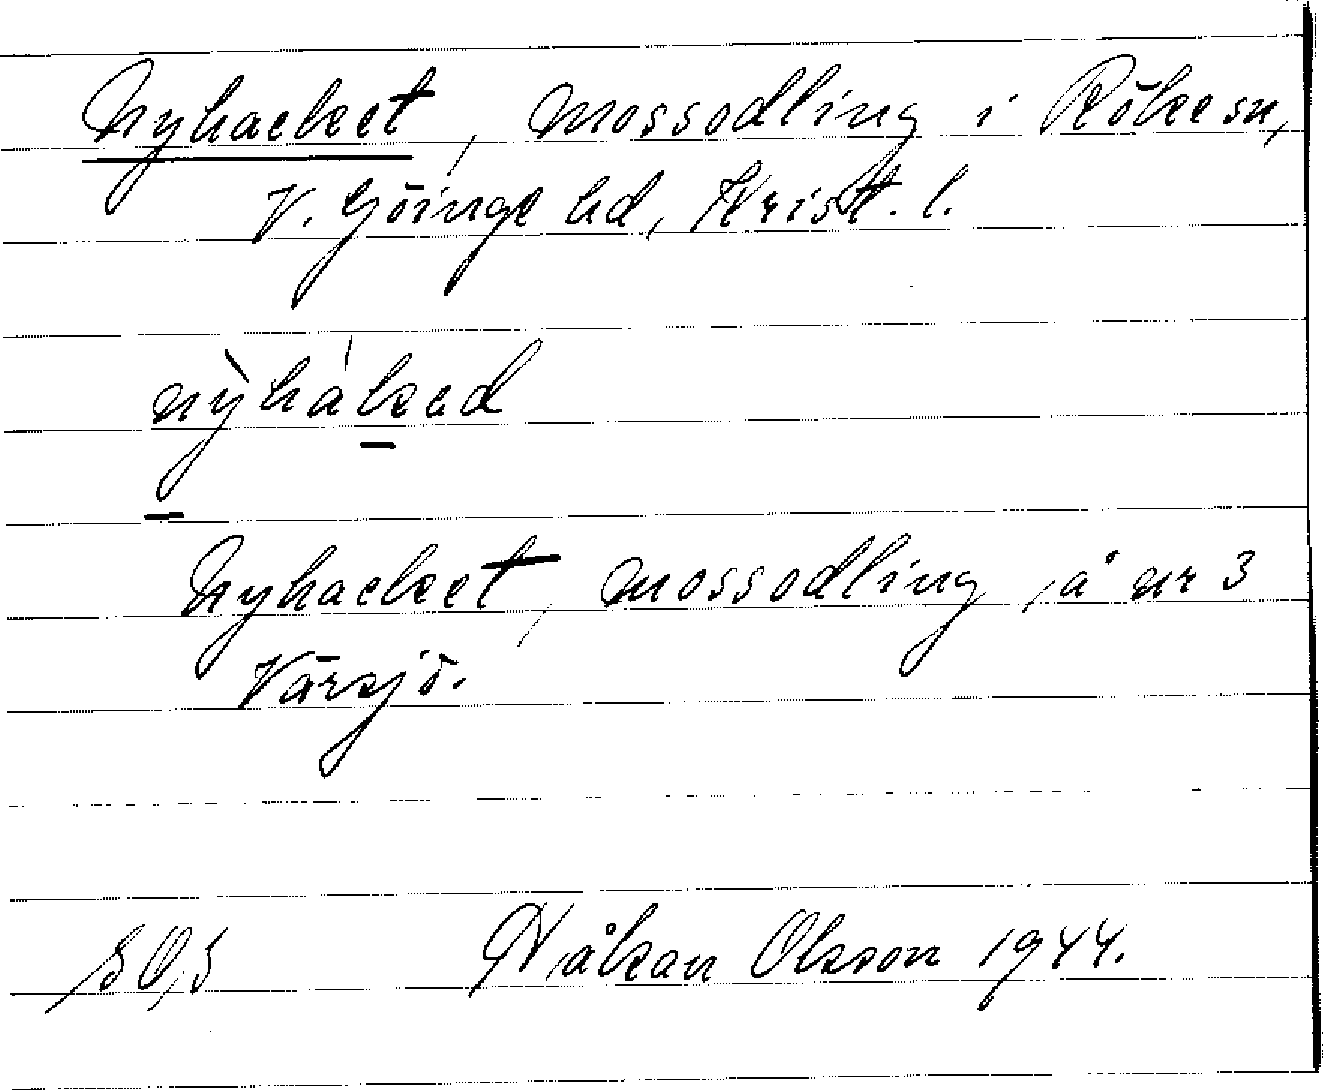 Nyhacket, mossodling i Röke sn,
V. Göinge hd, Krist. l.
nỳhákad
Nyhacket, mossodling, å nr 3
Vårsjö.
Håkan Olsson 1944.